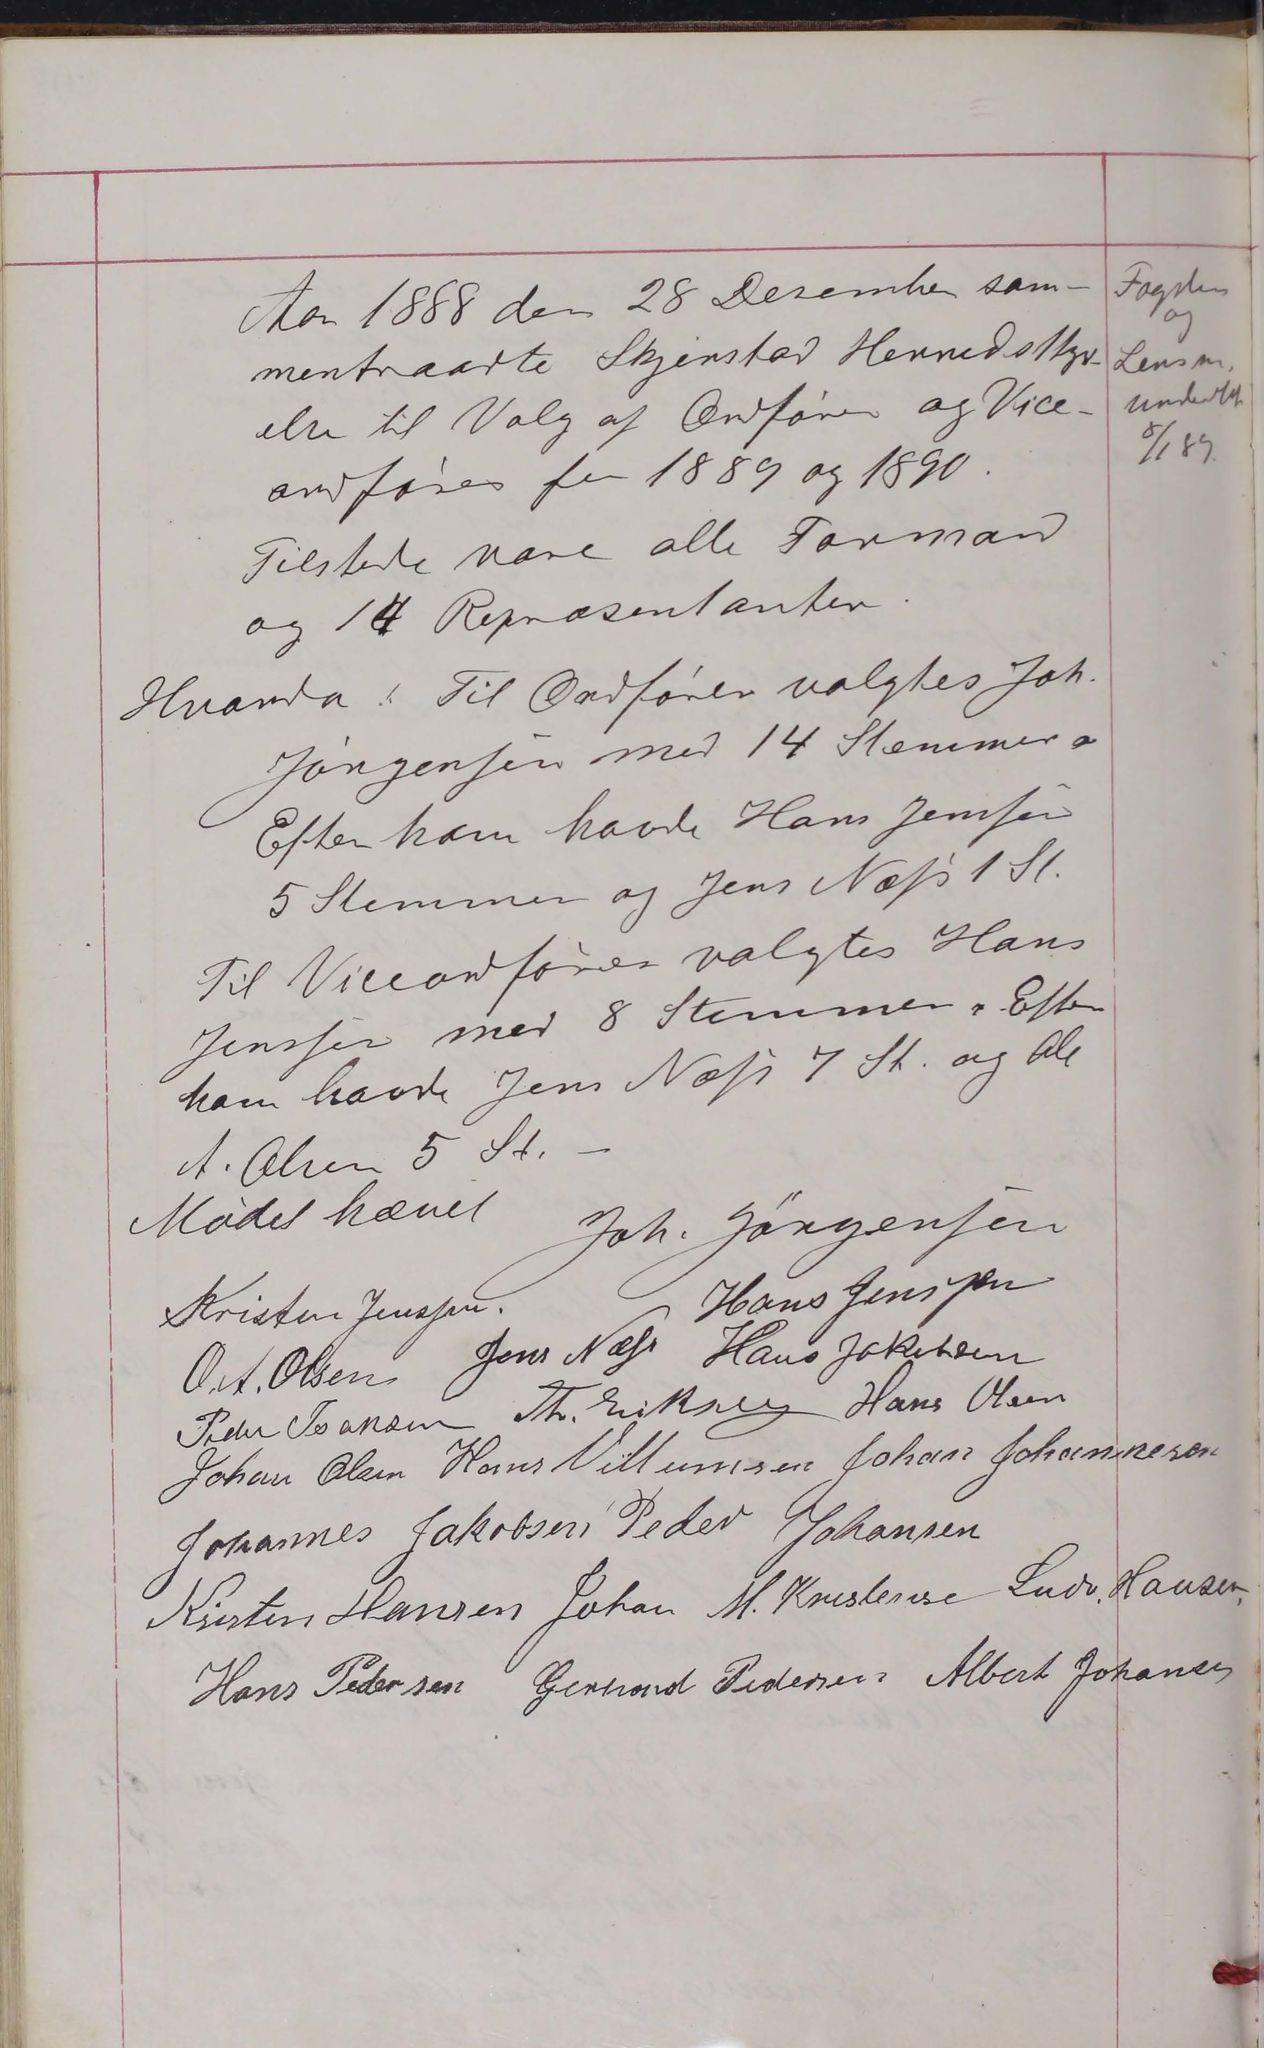 Aar 1888 den 28 Desember sam-
mentraadte Skjerstad Herredsstyr-
else til Valg af Ordfører og Vice-
ordfører for 1889 og 1890.
Tilstede vare alle Formænd
og 14 Repræsentanter.
Hvorda: Til Ordfører valgtes Joh.
Jørgensen med 14 Stemmer.
Efter ham havde Hans Jenssen
5 Stemmer og Jens Næss 1 St.
Til Viceordfører valgtes Hans
Jenssen med 8 Stemmer. Efter
ham havde Jens Næss 7 St. og Ole
A. Olsen 5 St. –
Mødet hævet
Joh. Jörgensen
Kristen Jenssen.
Hans Jenssen
O. A. Olsen Jens Næss Hans Jakobsen
Peder Isaksen Th. Eriksen Hans Olsen
Johan Olsen Hans Villumsen Johan Johannesen
Johannes Jakobsen Peder Johansen
Kristen Hansen Johan M. Kristense Ludv. Hansen,
Hans Pedersen Pedersen Albert Johansen
Fogden
og
Lensm.
underrett.
8/1 89.